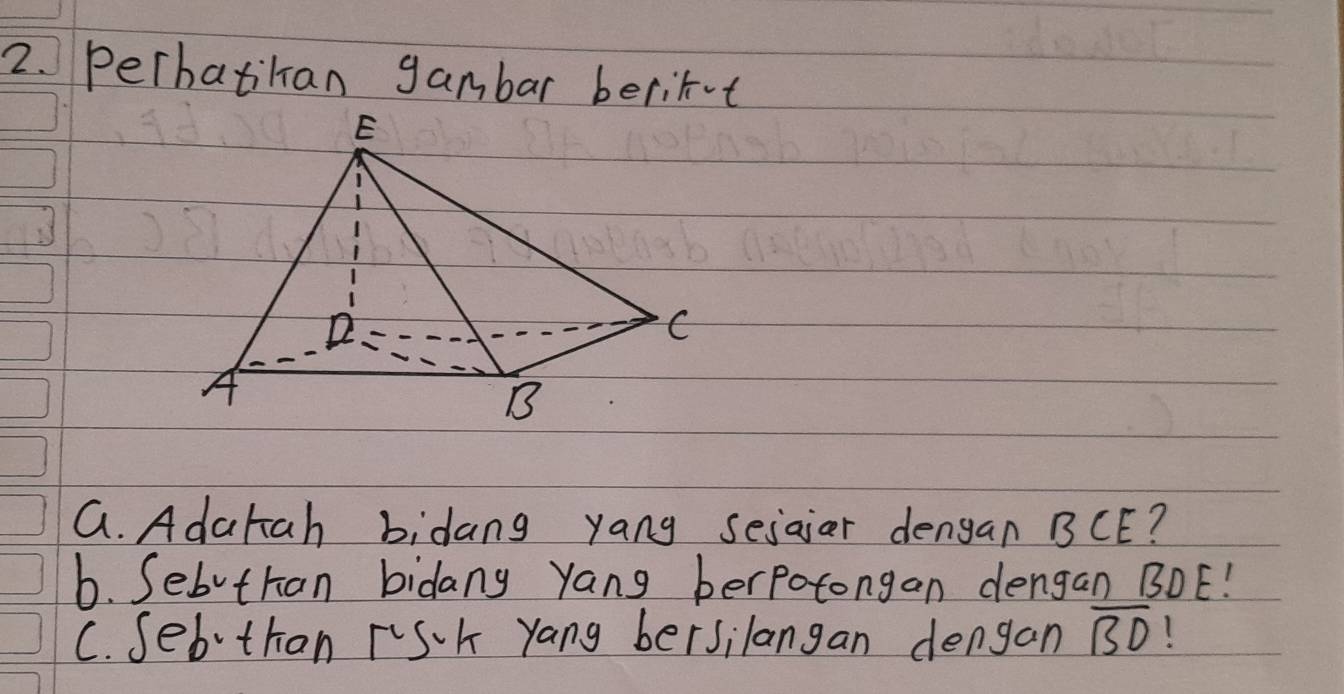 2. Perhatikan gambar berikut
E
D
C
A
B
a. Adakah bidang yang sejajar dengan BCE?
b. Sebutkan bidang yang berpotongan dengan BDE!
C. Sebutkan rusuk yang bersilangan dengan B̅D̅!